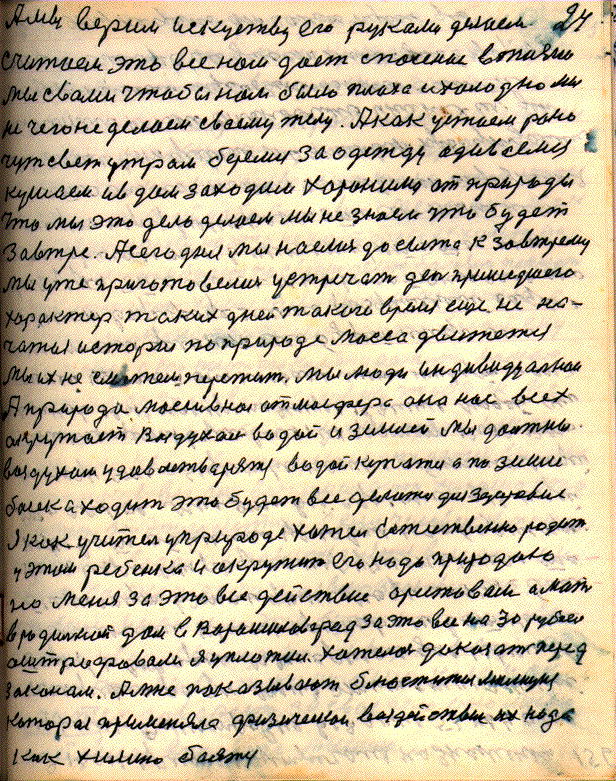 А мы верим искуству его руками делаем 24
считаем это все нам дает спасение
мы с вами чтобы нам было плоха и холодно мы
ни чего не делаем своему телу. А как устаем рано
чут свет утрам берем за одежду адиваемся
кушаем и в дом заходим Хороними от природы
Что мы это дело делаем мы не знаем что будет
Завтре. А сегодня мы наелис до сыта к завтрему
мы уже приготовелис устречат ден пришедшего
характер таких дней такого время еще не на-
чатыя история по природе масса движется
мы их не сможем пережит. Мы люди индивидуалнои
А природа массивная атмосфера она нас всех
акружает Воздухом водой и Землей мы должны
воздухам удавлетварятся водой купатся а по земле
басека ходит это будет все делатся для Здоровие
Я как учител у природе хател Естественно родит
у этом ребенка и акружит его нада природаю
но меня за это все действие арестовали а мат
в родилной дом в Ворошиловград За это все на 30 рублей
аштрафовали я уплатил. Хателос доказат перед
Законам. А мне показывают блюстители милиция
которая применяла физическаи воздействие их нада
как хилино баятся